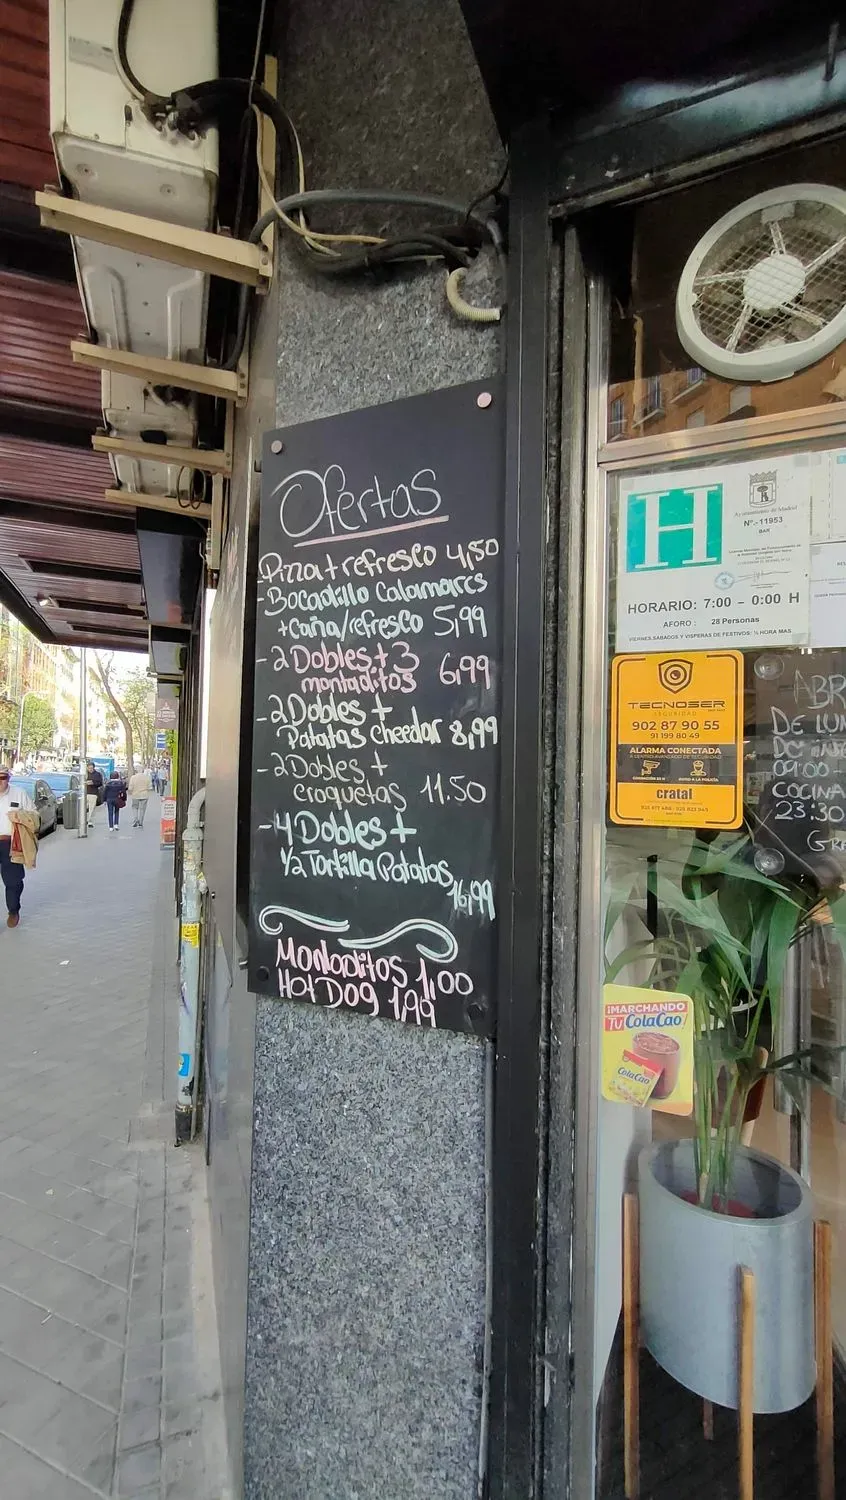 Ofertas
- Pizza + refresco 4,50
- Bocadillo Calamares
+ Caña/refresco 5,99
- 2 Dobles + 3
montaditos 6,99
- 2 Dobles +
Patatas cheedar 8,99
- 2 Dobles +
croquetas 11.50
- 4 Dobles +
1/2 Tortilla Patatas 16,99
Montaditos 1,00
Hot Dog 1,99
H
Ayuntamiento de Madrid
Nº.-11953
BAR
HORARIO: 7:00 - 0:00 H
AFORO: 28 Personas
VIERNES, SÁBADOS Y VISPERAS DE FESTIVOS: ½ HORA MAS
TECNOSER
SEGURIDAD
902 87 90 55
91 199 80 49
ALARMA CONECTADA
A CENTRO AVANZADO DE SEGURIDAD
GRABACIÓN 24 H
AVISO A LA POLICÍA
cratal
ABR
DE LUN
23:30
COCINA
GRA
¡MARCHANDO
TU ColaCao!
ColaCao